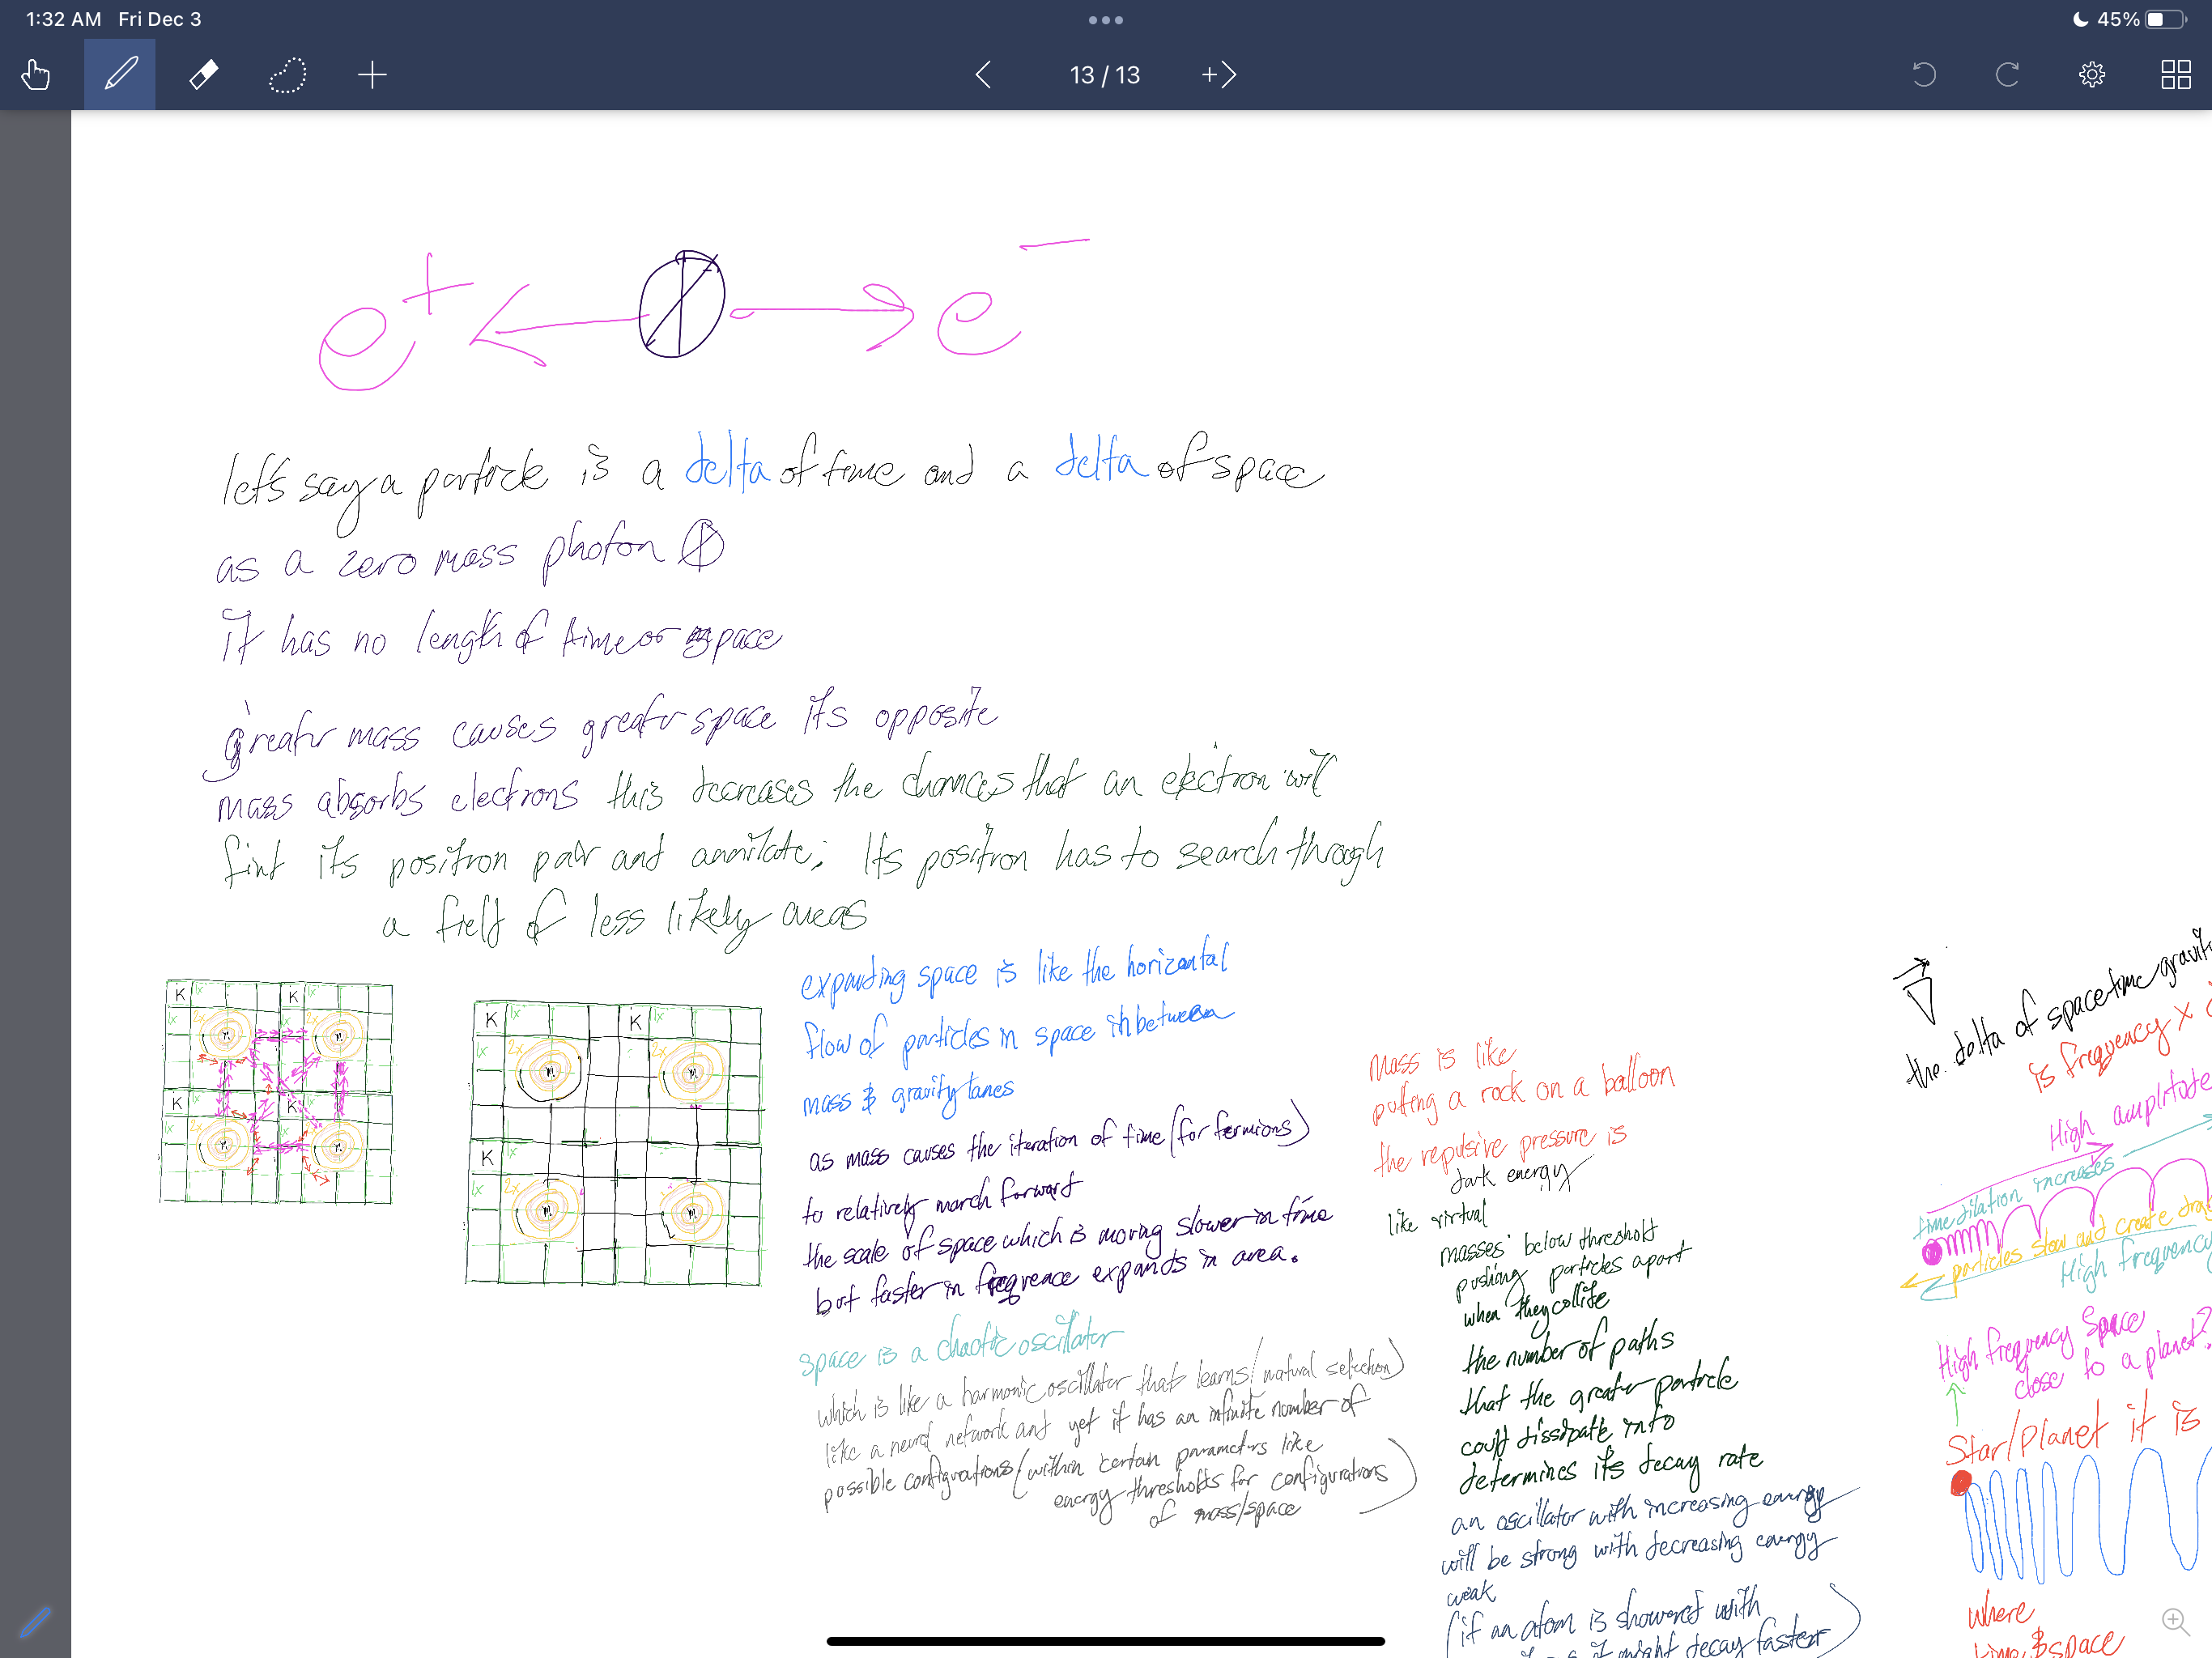 1:32 AM Fri Dec 3
45%
13 / 13
e+ e−
let's say a particle is a delta of time and a delta of space
as a zero mass photon
it has no length of time or space
greater mass causes greater space its opposite
mass absorbs electrons this decreases the chances that an electron will
find its positron pair and annilate; Its positron has to search through
a field of less likely areas
K 1x K 1x
1x 2x M 2x M
K 1x K
1x 2x M M
K 1x K 1x
1x 2x M 2x M
K 1x
1x 2x M M
expanding space is like the horizontal
flow of particles in space inbetween
mass & gravity lanes
as mass causes the iteration of time (for fermions)
to relatively march forward
the scale of space which is moving slower in time
but faster in freqvence expands in area.
space is a chaotic oscillator
which is like a harmonic oscillator that learns/natural selection)
like a neural network and yet it has an infinite number of
possible configurations (within certain parameters like
energy thresholds for configurations
of mass/space)
mass is like
putting a rock on a balloon
the repulsive pressure is
dark energy
like virtual
masses below threshold
pushing particles apart
when they collide
the number of paths
that the greater particle
could dissipate into
determines its decay rate
an oscillator with increasing energy
will be strong with decreasing energy
weak
(if an atom is showered with
it might decay faster)
the delta of spacetime gravit
is frequency x
High amplitude
time dilation increases
particles slow and create
High frequency
High frequency Space
close to a planet?
Star/Planet it is
where
time & space